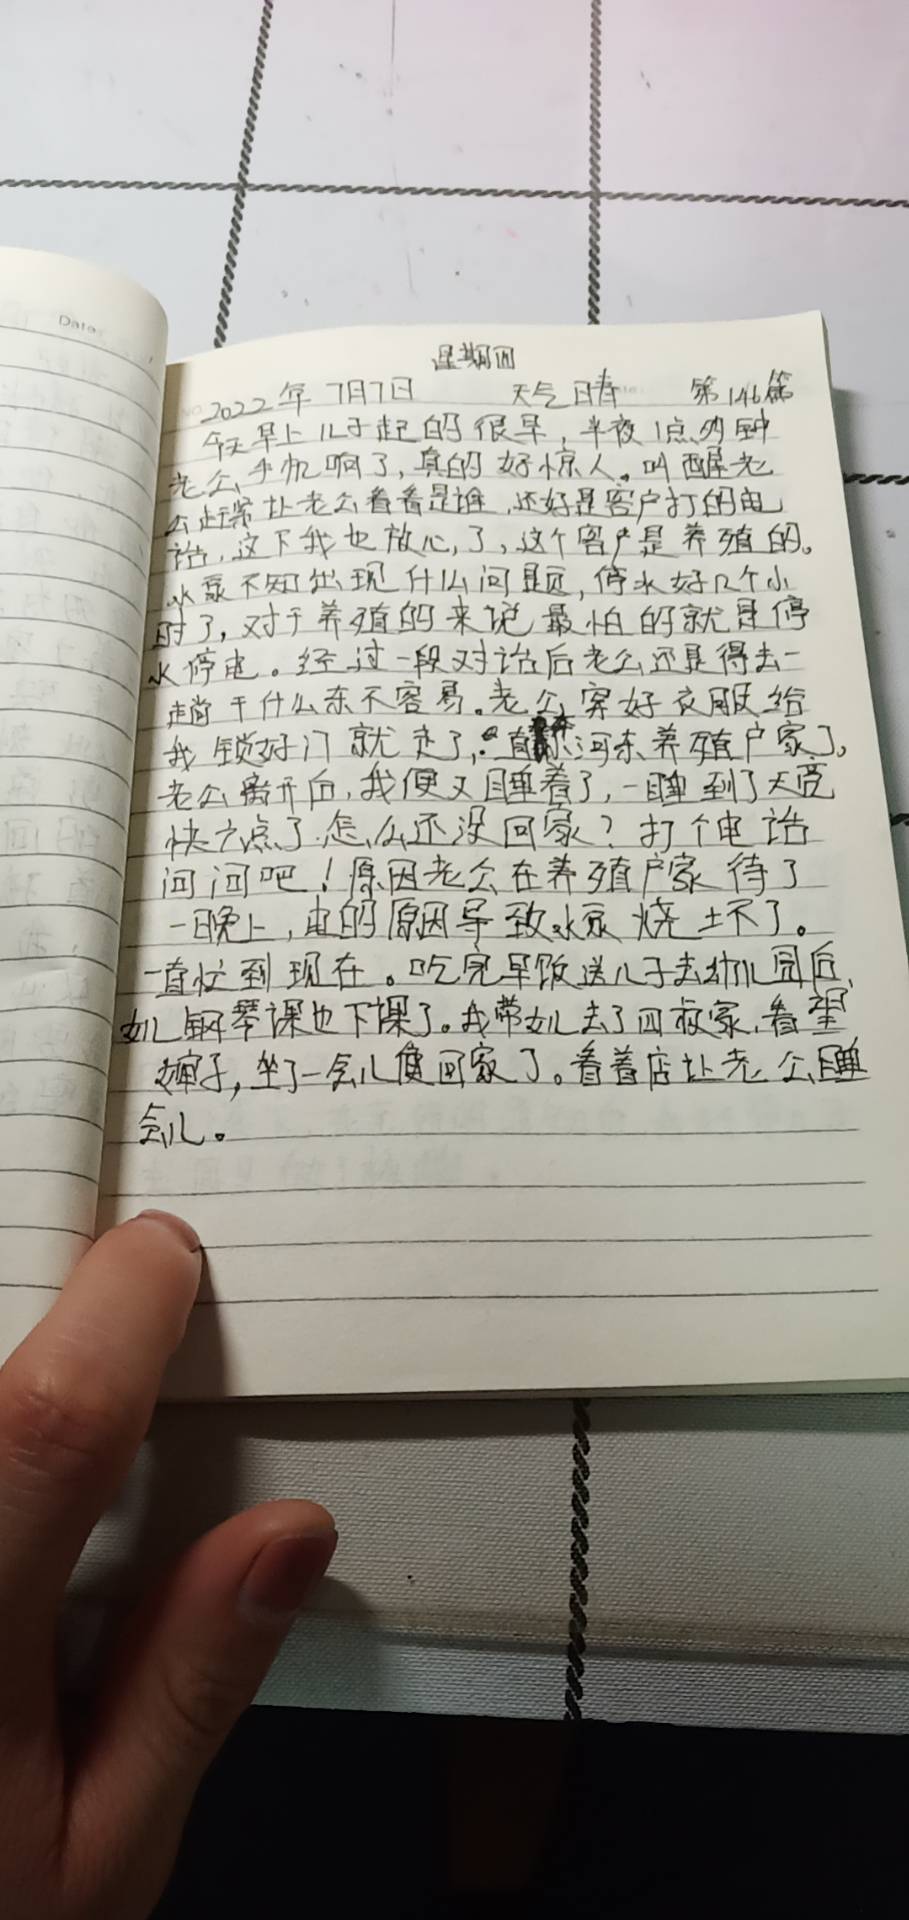 Date:
星期四
NO. 2022年7月7日 天气晴 第146篇
今天早上儿子起的很早,半夜1点多钟
老公手机响了,真的好惊人。叫醒老
公赶紧让老公看看是谁,还好是客户打的电
话,这下我也放心了,这个客户是养殖的。
水泵不知出现什么问题,停水好几个小
时了,对于养殖的来说最怕的就是停
水停电。经过一段对话后老公还是得去一
趟干什么东不容易。老公穿好衣服给
我锁好门就走了,直 河东养殖户家了。
老公离开后,我便又睡着了,一睡到了天亮
快六点了.怎么还没回家?打个电话
问问吧!原因老公在养殖户家待了
一晚上,电的原因导致水泵烧坏了。
一直忙到现在。吃完早饭送儿子去幼儿园后,
女儿钢琴课也下课了。我带女儿去了四叔家,看望
婶子,坐了一会儿便回家了。看着店让老公睡
会儿。